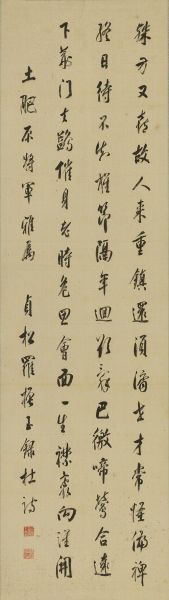 殊方又喜故人來重鎮還須濟世才常怪偏裨
終日待不知旌節隔年迴欲辭巴徼啼鶯合遠
下荊門去鷁催身老時危思會面一生襟袍向誰開
土肥原將軍雅屬 貞松羅振玉錄杜詩